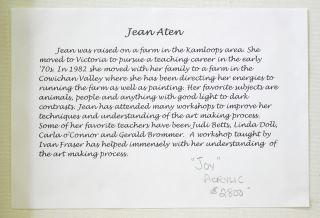 Jean Aten
Jean was raised on a farm in the Kamloops area. She
moved to Victoria to pursue a teaching career in the early
'70s. In 1982 she moved with her family to a farm in the
Cowichan Valley where she has been directing her energies to
running the farm as well as painting. Her favorite subjects are
animals, people and anything with good light to dark
contrasts. Jean has attended many workshops to improve her
techniques and understanding of the art making process.
Some of her favorite teachers have been Judi Betts, Linda Doll,
Carla o'Connor and Gerald Brommer. A workshop taught by
Ivan Fraser has helped immensely with her understanding of
the art making process.
"Joy"
Acrylic
$2800